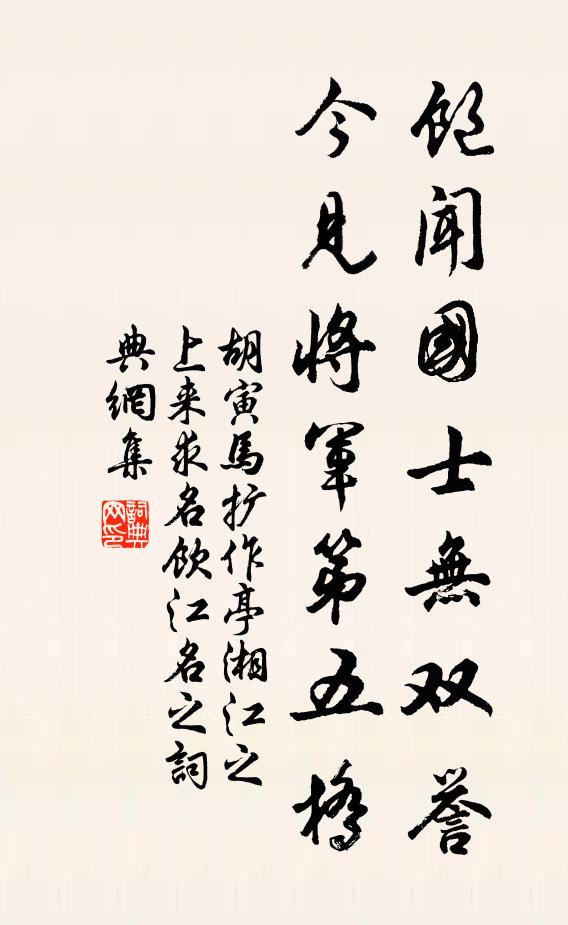 飽聞國士無双誉
今見將軍第五橋
胡寅馬扩作亭湘江之
上来求名飲江名之詞
典網集
詞典網印